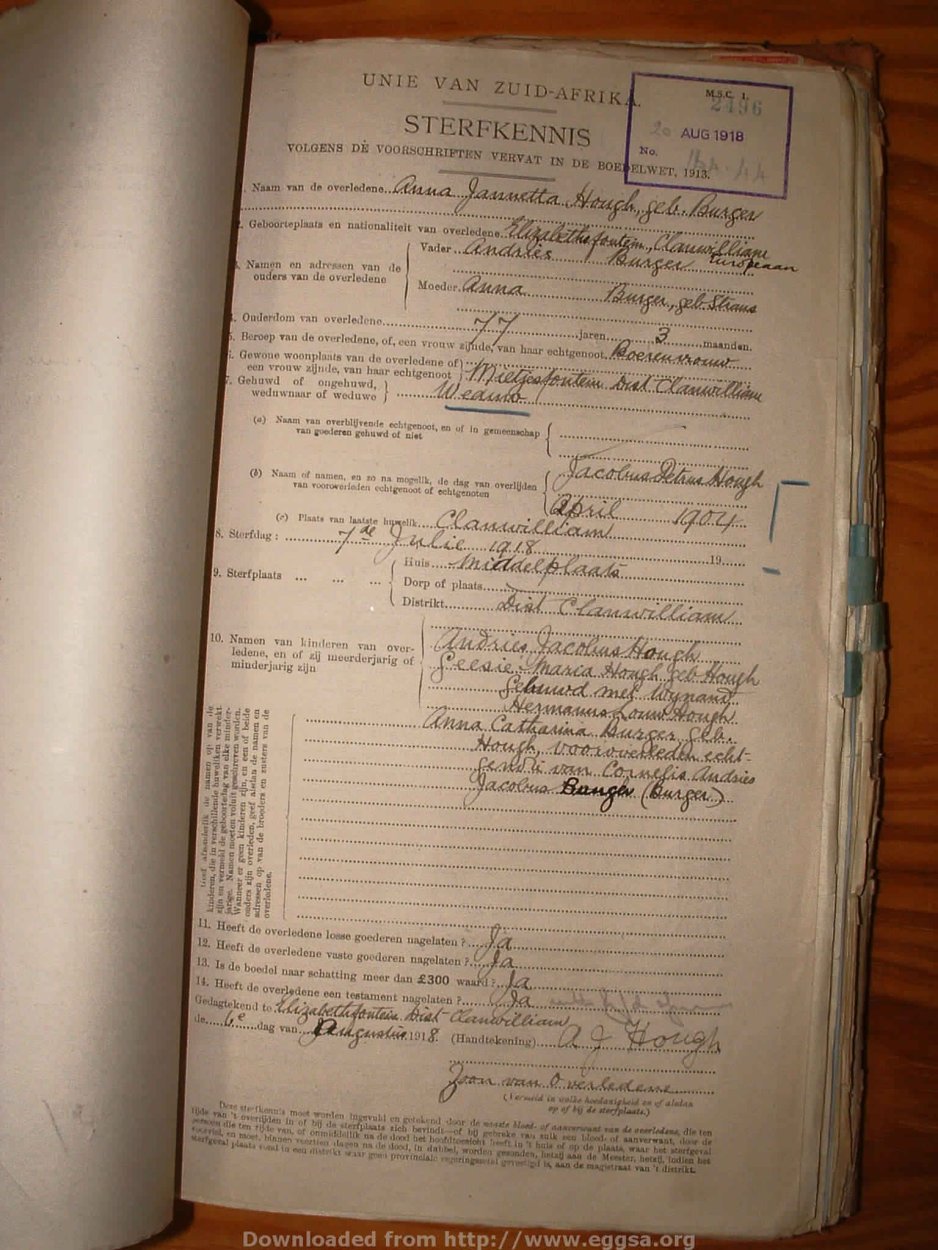 UNIE VAN ZUID-AFRIKA.
M.S.C. 1.
2496
20 AUG 1918
No.
STERFKENNIS
VOLGENS DE VOORSCHRIFTEN VERVAT IN DE BOEDELWET, 1913.
1. Naam van de overledene Anna Jannetta Hough, geb. Burger
2. Geboorteplaats en nationaliteit van overledene Elizabethsfontein, Clanwilliam
Europeaan
3. Namen en adressen van de ouders van de overledene
Vader Andries Burger
Moeder Anna Burger, geb. Straus
4. Ouderdom van overledene 77 jaren 3 maanden.
5. Beroep van de overledene, of, een vrouw zijnde, van haar echtgenoot Boerenvrouw
6. Gewone woonplaats van de overledene of
een vrouw zijnde, van haar echtgenoot
Mietjesfontein Dist Clanwilliam
7. Gehuwd of ongehuwd,
weduwnaar of weduwe
Weduw
(a) Naam van overblijvende echtgenoot, en of in gemeenschap
van goederen gehuwd of niet
(b) Naam of namen, en zo na mogelik, de dag van overlijden
van vooroverleden echtgenoot of echtgenoten
Jacobus Petrus Hough
April 1904
(c) Plaats van laatste huwelik Clanwilliam
8. Sterfdag: 7de Julie 1918 19
9. Sterfplaats
Huis Middelplaats
Dorp of plaats
Distrikt Dist Clanwilliam
10. Namen van kinderen van over-
ledene, en of zij meerderjarig of
minderjarig zijn
Andries Jacobus Hough
Geesie Maria Hough geb Hough
Gehuwd met Wynand
Hermanus Louw Hough
Anna Catharina Burger geb.
Hough, vooroverleden echt-
genote van Cornelis Andries
Jacobus Burger (Burger)
Geef afzonderlik de namen op van de
kinderen, die in verschillende huweliken verwekt
zijn en vermeld de geboortedag van elke minder-
jarige. Namen moeten voluit geschreven worden.
Wanneer er geen kinderen zijn, en een of beide
ouders zijn overleden, geef alsdan de namen en
adressen op van de broeders en zusters van de
overledene.
11. Heeft de overledene losse goederen nagelaten? Ja
12. Heeft de overledene vaste goederen nagelaten? Ja
13. Is de boedel naar schatting meer dan £300 waard? Ja
14. Heeft de overledene een testament nagelaten? Ja
Gedagtekend te Elizabethfontein Dist Clanwilliam
de 6e dag van Augustus 1918. (Handtekening) A J Hough
Zoon van Overledene
(Vermeld in welke hoedanigheid en of aldan
op of bij de sterfplaats.)
Deze sterfkennis moet worden ingevuld en getekend door de naaste bloed- of aanverwant van de overledene, die ten
tijde van 't overlijden in of bij de sterfplaats zich bevindt—of bij gebreke van zulk een bloed- of aanverwant, door de
persoon die ten tijde van, of onmiddellik na de dood het hoofdtoezicht heeft in 't huis of op de plaats, waar het sterfgeval
voorviel, en moet, binnen veertien dagen na de dood, in dubbel, worden gezonden, hetzij aan de Meester, hetzij, indien het
sterfgeval plaats vond in een distrikt waar geen provinciale regeringszetel gevestigd is, aan de magistraat van 't distrikt.
Downloaded from http://www.eggsa.org